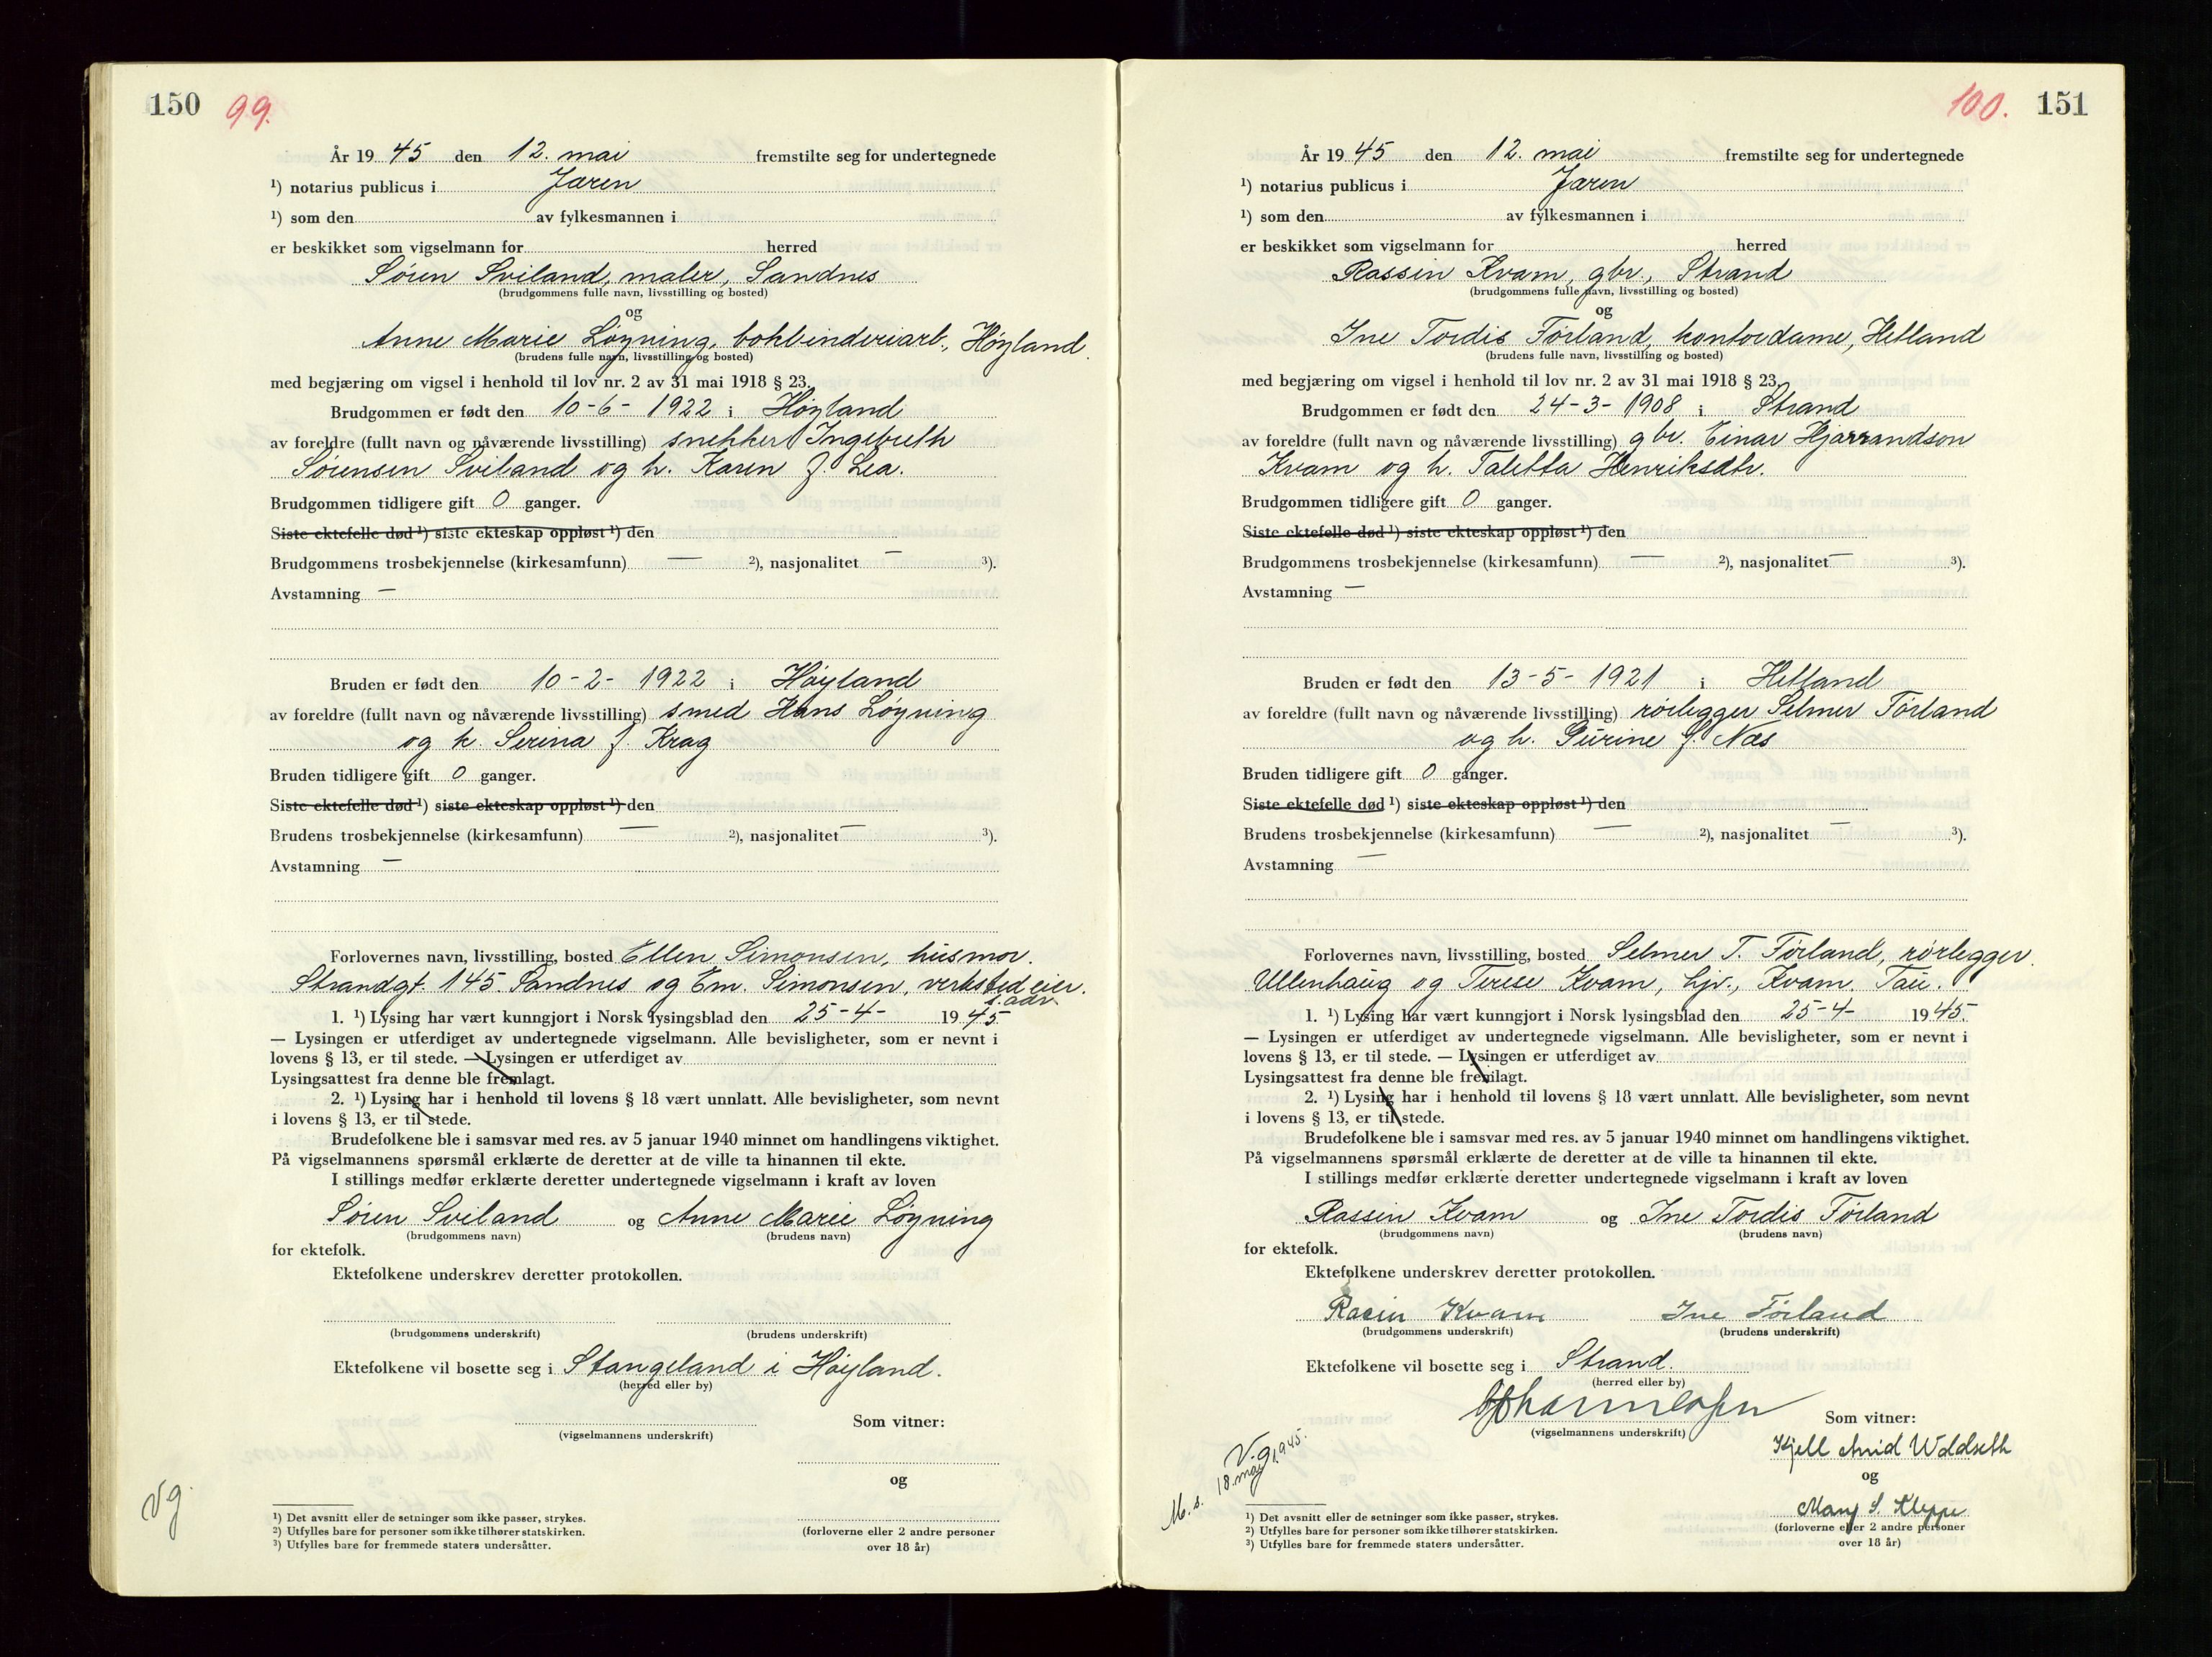 150 99.
År 1945 den 12. mai fremstilte seg for undertegnede
¹) notarius publicus i Jæren
¹) som den av fylkesmannen i
er beskikket som vigselmann for herred
Sören Sviland, maler, Sandnes
(brudgommens fulle navn, livsstilling og bosted)
og
Anne Marie Löyning, bokbinderiarb., Höyland.
(brudens fulle navn, livsstilling og bosted)
med begjæring om vigsel i henhold til lov nr. 2 av 31 mai 1918 § 23.
Brudgommen er født den 10-6- 1922 i Höyland
av foreldre (fullt navn og nåværende livsstilling) snekker Ingebreth
Sörensen Sviland og h. Karen f. Lea.
Brudgommen tidligere gift 0 ganger.
Siste ektefelle død ¹) siste ekteskap oppløst ¹) den
Brudgommens trosbekjennelse (kirkesamfunn) — ²), nasjonalitet — ³).
Avstamning —
Bruden er født den 10-2- 1922 i Höyland
av foreldre (fullt navn og nåværende livsstilling) smed Hans Löyning
og h. Serina f. Krag
Bruden tidligere gift 0 ganger.
Siste ektefelle død ¹) siste ekteskap oppløst ¹) den
Brudens trosbekjennelse (kirkesamfunn) — ²), nasjonalitet — ³).
Avstamning —
Forlovernes navn, livsstilling, bosted Ellen Simonsen, husmor.
Strandgt. 145. Sandnes og Em. Simonsen, verksted eier.
s. adr.
1. ¹) Lysing har vært kunngjort i Norsk lysingsblad den 25-4- 1945
— Lysingen er utferdiget av undertegnede vigselmann. Alle bevisligheter, som er nevnt i
lovens § 13, er til stede. — Lysingen er utferdiget av
Lysingsattest fra denne ble fremlagt.
2. ¹) Lysing har i henhold til lovens § 18 vært unnlatt. Alle bevisligheter, som nevnt
i lovens § 13, er til stede.
Brudefolkene ble i samsvar med res. av 5 januar 1940 minnet om handlingens viktighet.
På vigselmannens spørsmål erklærte de deretter at de ville ta hinannen til ekte.
I stillings medfør erklærte deretter undertegnede vigselmann i kraft av loven
Sören Sviland og Anne Marie Löyning
(brudgommens navn) (brudens navn)
for ektefolk.
Ektefolkene underskrev deretter protokollen.
(brudgommens underskrift) (brudens underskrift)
Ektefolkene vil bosette seg i Stangeland i Höyland.
(herred eller by)
Som vitner:
(vigselmannens underskrift)
og
Vg.
¹) Det avsnitt eller de setninger som ikke passer, strykes.
²) Utfylles bare for personer som ikke tilhører statskirken.
³) Utfylles bare for fremmede staters undersåtter.
(forloverne eller 2 andre personer
over 18 år)
100. 151
År 1945 den 12. mai fremstilte seg for undertegnede
¹) notarius publicus i Jæren
¹) som den av fylkesmannen i
er beskikket som vigselmann for herred
Rassin Kvam, gbr., Strand
(brudgommens fulle navn, livsstilling og bosted)
og
Ine Tordis Törland, kontordame, Hetland
(brudens fulle navn, livsstilling og bosted)
med begjæring om vigsel i henhold til lov nr. 2 av 31 mai 1918 § 23.
Brudgommen er født den 24-3- 1908 i Strand
av foreldre (fullt navn og nåværende livsstilling) gbr. Einar Hjarrandson
Kvam og h. Taletta Henriksdtr.
Brudgommen tidligere gift 0 ganger.
Siste ektefelle død ¹) siste ekteskap oppløst ¹) den
Brudgommens trosbekjennelse (kirkesamfunn) — ²), nasjonalitet — ³).
Avstamning —
Bruden er født den 13-5- 1921 i Hetland
av foreldre (fullt navn og nåværende livsstilling) rörlegger Selmer Törland
og h. Gurine f. Næs
Bruden tidligere gift 0 ganger.
Siste ektefelle død ¹) siste ekteskap oppløst ¹) den
Brudens trosbekjennelse (kirkesamfunn) — ²), nasjonalitet — ³).
Avstamning —
Forlovernes navn, livsstilling, bosted Selmer T. Törland, rörlegger.
Ullenhaug og Terese Kvam, hjv., Kvam. Tau.
1. ¹) Lysing har vært kunngjort i Norsk lysingsblad den 25-4- 1945.
— Lysingen er utferdiget av undertegnede vigselmann. Alle bevisligheter, som er nevnt i
lovens § 13, er til stede. — Lysingen er utferdiget av
Lysingsattest fra denne ble fremlagt.
2. ¹) Lysing har i henhold til lovens § 18 vært unnlatt. Alle bevisligheter, som nevnt
i lovens § 13, er til stede.
Brudefolkene ble i samsvar med res. av 5 januar 1940 minnet om handlingens viktighet.
På vigselmannens spørsmål erklærte de deretter at de ville ta hinannen til ekte.
I stillings medfør erklærte deretter undertegnede vigselmann i kraft av loven
Rassin Kvam og Ine Tordis Törland
(brudgommens navn) (brudens navn)
for ektefolk.
Ektefolkene underskrev deretter protokollen.
Rasin Kvam Ine Törland
(brudgommens underskrift) (brudens underskrift)
Ektefolkene vil bosette seg i Strand.
(herred eller by)
Som vitner:
(vigselmannens underskrift)
Kjell Arvid Uldseth
og
Mary S. Kleppe
Vg.
M. s. 18. mai 1945.
¹) Det avsnitt eller de setninger som ikke passer, strykes.
²) Utfylles bare for personer som ikke tilhører statskirken.
³) Utfylles bare for fremmede staters undersåtter.
(forloverne eller 2 andre personer
over 18 år)